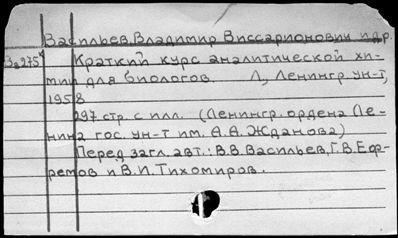 Васильев, Владимир Виссарионович и др.
За275ч Краткий курс аналитической хи-
мии для биологов. Л, Ленингр. ун-т,
1958
297 стр. с илл. (Ленингр. ордена Ле-
нина гос. ун-т им. А.А. Жданова)
Перед загл. авт.: В.В. Васильев, Г.В. Еф-
ремов и В.И. Тихомиров.